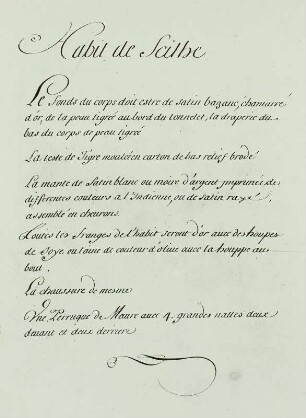 Habit de Scithe
Le fonds du corps doit estre de satin bazané, chamarré
d'or, de la peau tigré au bord du tonnelet, la draperie du
bas du corps de peau tigré
La teste de Tigre moulé en carton de bas relief brodé
La mante de Satin blanc ou moire d'argent imprimée de
differentes couleurs a l'Indienne, ou de satin rayé,
assemblé en cheurons.
Toutes les franges de l'habit seront d'or auec des houpes
de Soye ou laine de couleur d'oliue auec la houppe au
bout.
La chaussure de mesme
Vne Perruque de Maure auec 4. grandes nattes deux
deuant et deux derriere